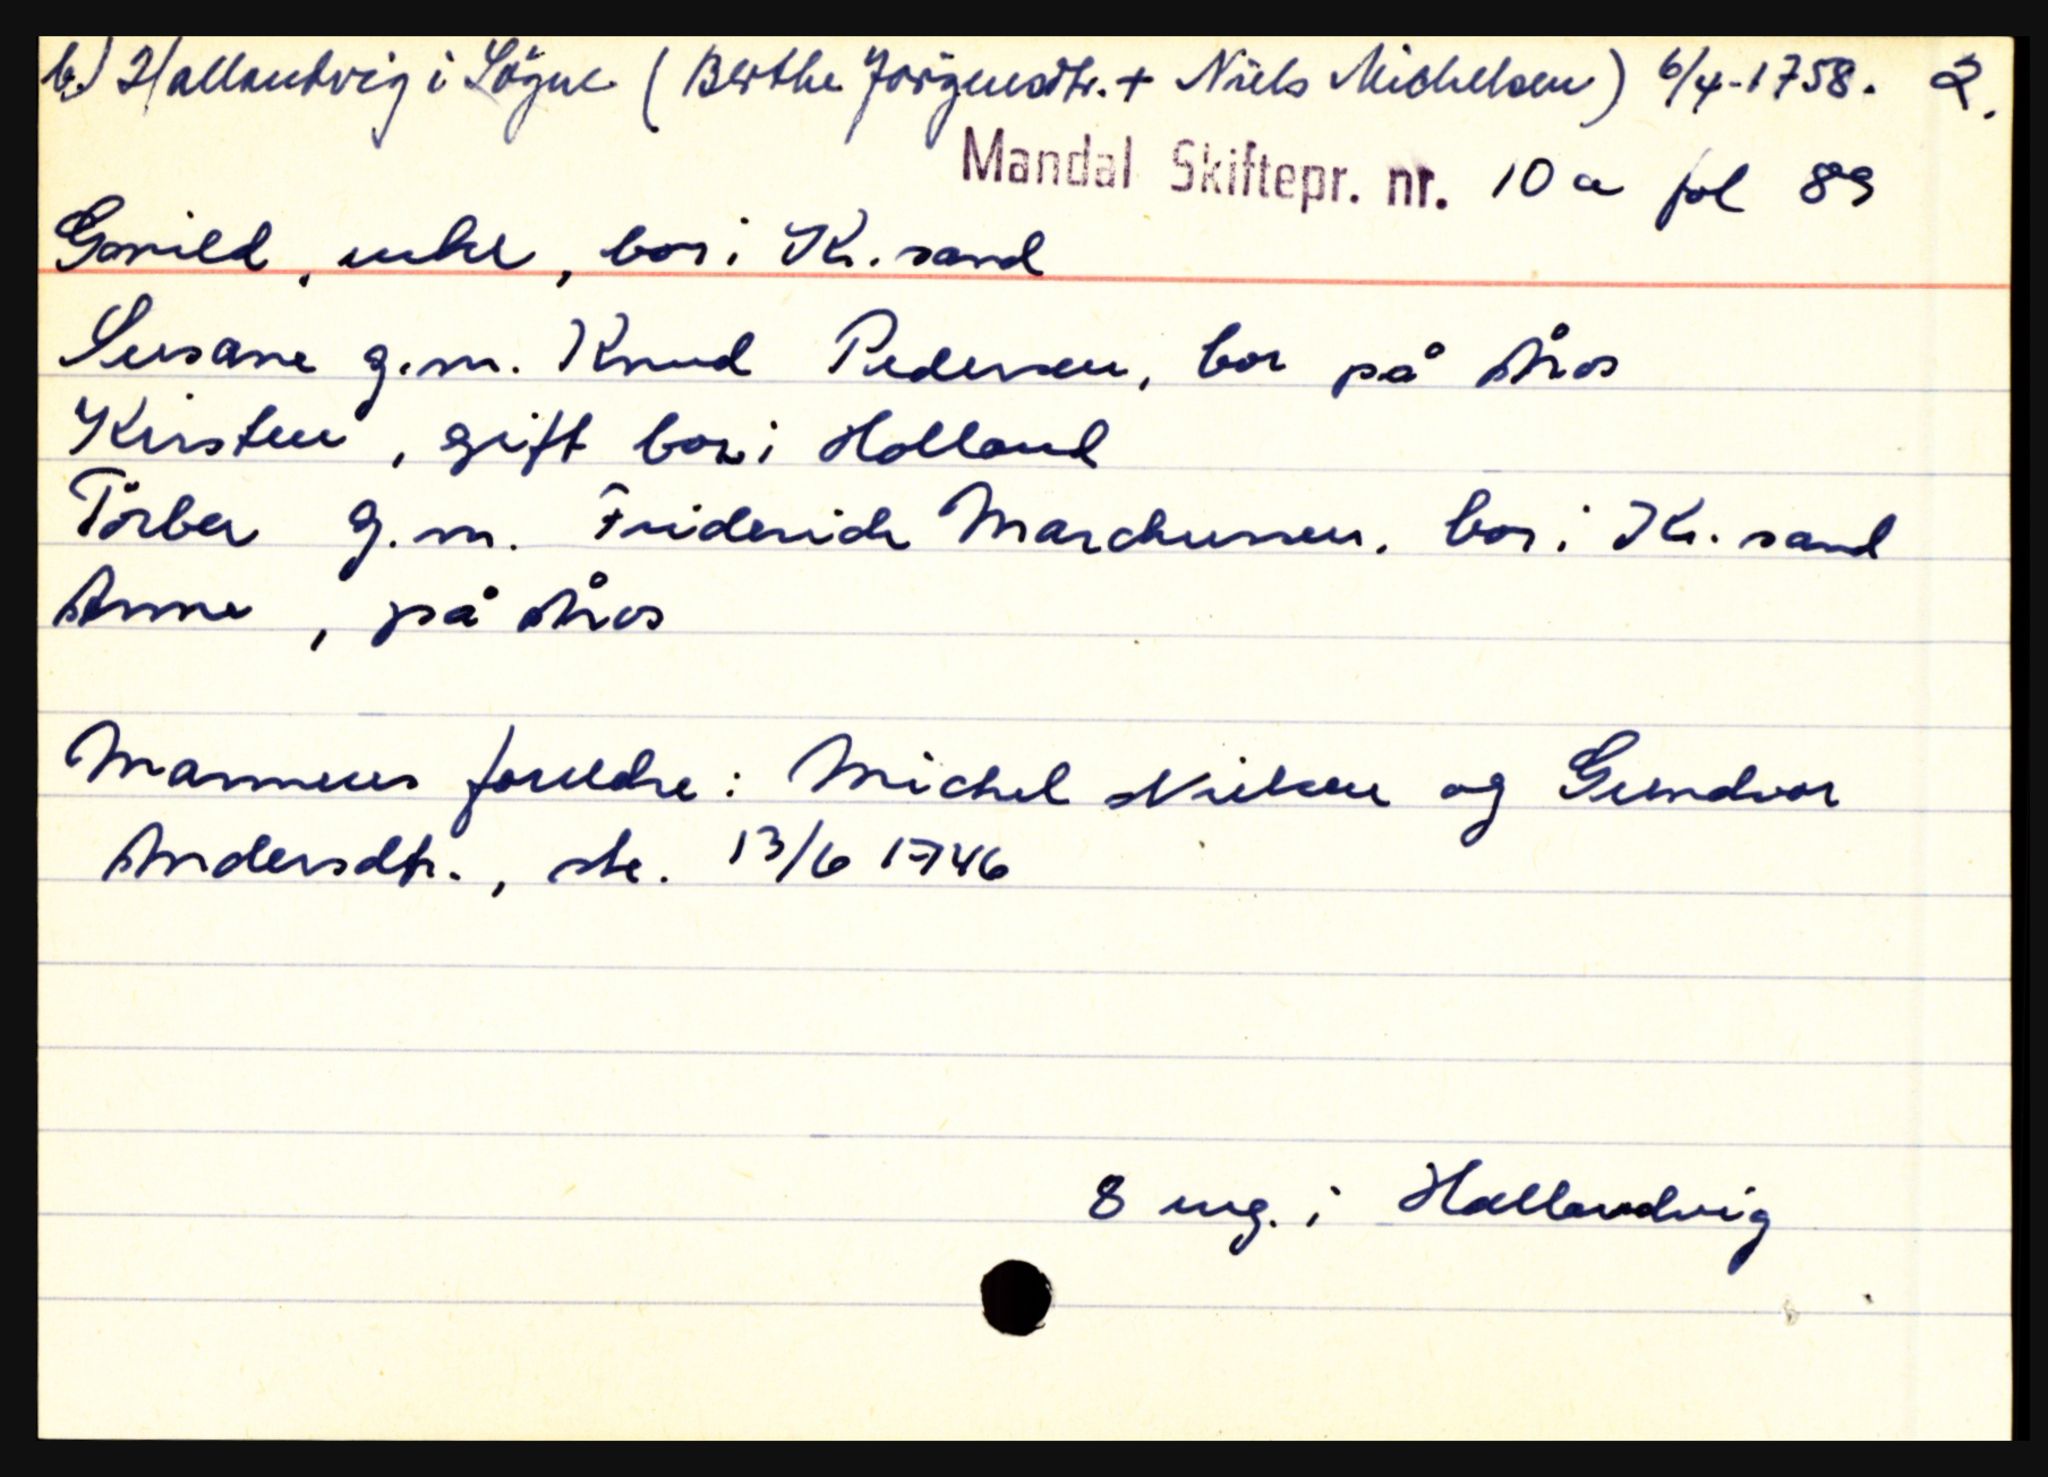 b.) Hallandvig i Sögne (Berthe Jörgensdtr. + Niels Michelsen) 6/4-1758. 2.
Mandal Skiftepr. nr. 10 a fol 89
Gonild, enke, bor i Kr.sand
Susane g.m. Knud Pedersen, bor på Åros
Kirsten, gift bor i Holland
Törber g.m. Friderich Marchussen, bor i Kr.sand
Anne, på Åros
Mannens foreldre: Michel Nielsen og Gundvor
Andersdtr., ste. 13/6 1746
8 eng. i Hallandvig